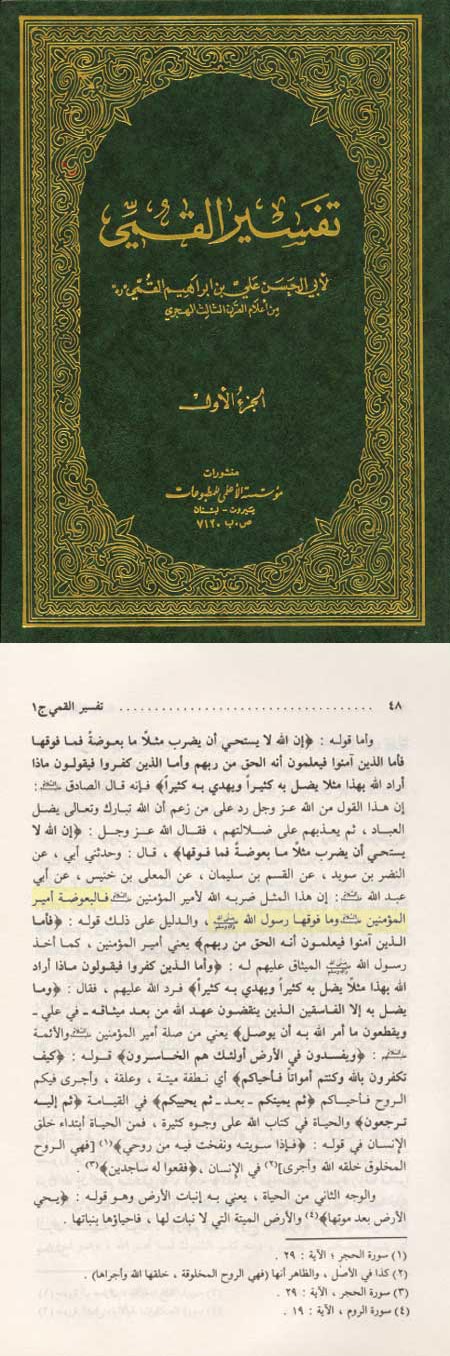 تفسير القمي
لأبي الحسن علي بن ابراهيم القمي «ره»
من أعلام القرن الثالث الهجري
الجزء الأول
منشورات
مؤسسة الأعلمي للمطبوعات
بيروت - لبنان
ص.ب ٧١٢٠
٤٨ ........................................ تفسير القمي ج١
وأما قوله : ﴿إن الله لا يستحي أن يضرب مثلًا ما بعوضة فما فوقها
فأما الذين آمنوا فيعلمون أنه الحق من ربهم وأما الذين كفروا فيقولون ماذا
أراد الله بهذا مثلا يضل به كثيراً ويهدي به كثيراً﴾ فإنه قال الصادق :
إن هذا القول من الله عز وجل رد على من زعم أن الله تبارك وتعالى يضل
العباد ، ثم يعذبهم على ضلالتهم ، فقال الله عز وجل : ﴿إن الله لا
يستحي أن يضرب مثلًا ما بعوضة فما فوقها﴾ ، قال : وحدثني أبي ، عن
النضر بن سويد ، عن القسم بن سليمان ، عن المعلى بن خنيس ، عن أبي
عبد الله : إن هذا المثل ضربه الله لأمير المؤمنين فالبعوضة أمير
المؤمنين وما فوقها رسول الله ، والدليل على ذلك قوله : ﴿فأما
الذين آمنوا فيعلمون أنه الحق من ربهم﴾ يعني أمير المؤمنين ، كما أخذ
رسول الله الميثاق عليهم له : ﴿وأما الذين كفروا فيقولون ماذا أراد
الله بهذا مثلًا يضل به كثيراً ويهدي به كثيراً﴾ فرد الله عليهم ، فقال : ﴿وما
يضل به إلا الفاسقين الذين ينقضون عهد الله من بعد ميثاقه ـ في علي ـ
ويقطعون ما أمر الله به أن يوصل﴾ يعني من صلة أمير المؤمنين والأئمة
: ﴿ويفسدون في الأرض أولئك هم الخاسرون﴾ قوله : ﴿كيف
تكفرون بالله وكنتم أمواتاً فأحياكم﴾ أي نطفة ميتة ، وعلقة ، وأجرى فيكم
الروح فأحياكم ﴿ثم يميتكم ـ بعد ـ ثم يحييكم﴾ في القيامة ﴿ثم إليه
ترجعون﴾ والحياة في كتاب الله على وجوه كثيرة ، فمن الحياة أبتداء خلق
الإنسان في قوله : ﴿فإذا سويته ونفخت فيه من روحي﴾(١) [فهي الروح
المخلوق خلقه الله وأجرى](٢) في الإنسان ، ﴿فقعوا له ساجدين﴾(٣) .
والوجه الثاني من الحياة ، يعني به إنبات الأرض وهو قوله : ﴿يحي
الأرض بعد موتها﴾(٤) والأرض الميتة التي لا نبات لها ، فاحياؤها بنباتها .
(١) سورة الحجر ؛ الآية : ٢٩ .
(٢) كذا في الأصل ، والظاهر أنها (فهي الروح المخلوقة ، خلقها الله وأجراها) .
(٣) سورة الحجر ، الآية : ٢٩ .
(٤) سورة الروم ، الآية : ١٩ .